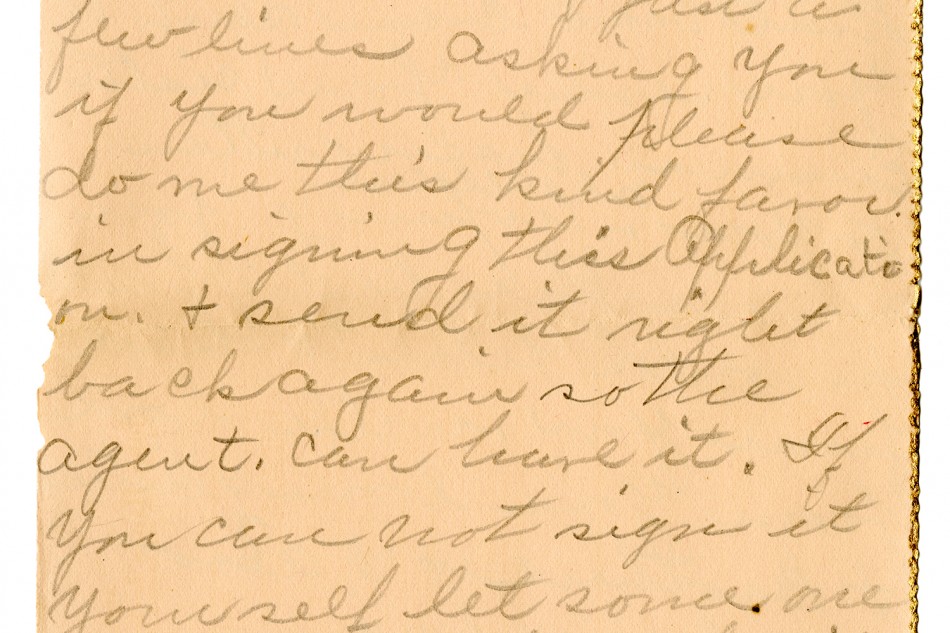 just a
few lines asking you
if you would please
do me this kind favor.
in signing this Applicati
on. + send it right
back again so the
agent. can have it. If
you can not sign it
yourself let some one